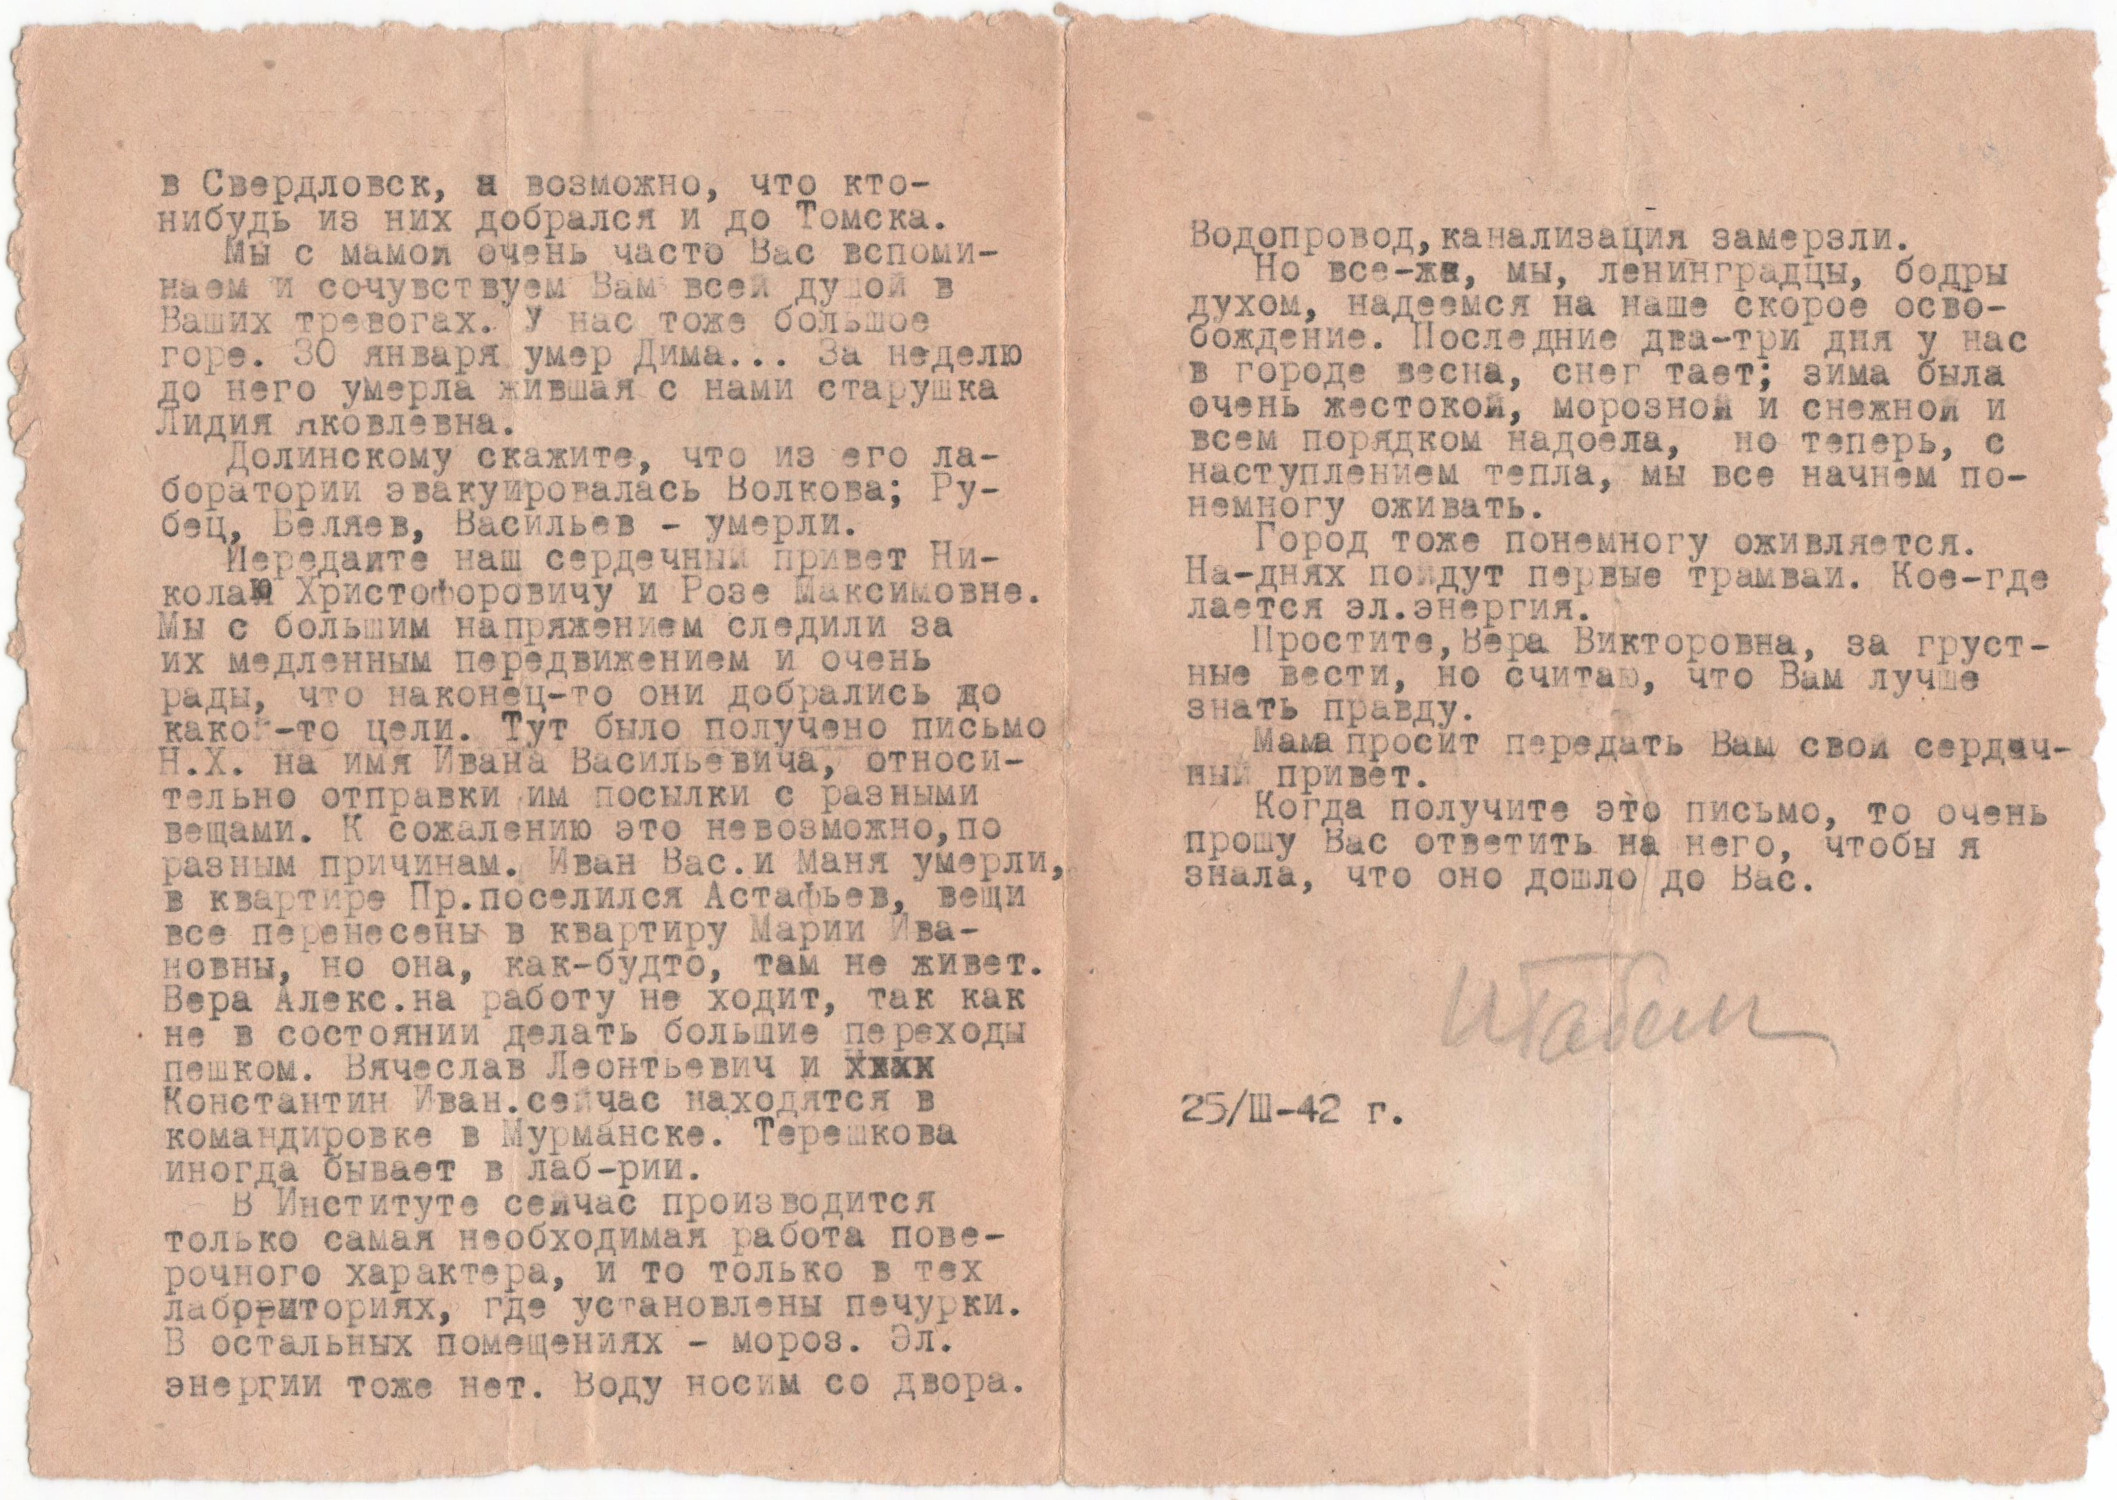 в Свердловск, и возможно, что кто-
нибудь из них добрался и до Томска.
Мы с мамой очень часто Вас вспоми-
наем и сочувствуем Вам всей душой в
Ваших тревогах. У нас тоже большое
горе. 30 января умер Дима... За неделю
до него умерла жившая с нами старушка
Лидия Яковлевна.
Долинскому скажите, что из его ла-
боратории эвакуировалась Волкова; Ру-
бец, Беляев, Васильев - умерли.
Передайте наш сердечный привет Ни-
колаю Христофоровичу и Розе Максимовне.
Мы с большим напряжением следили за
их медленным передвижением и очень
рады, что наконец-то они добрались до
какой-то цели. Тут было получено письмо
Н.Х. на имя Ивана Васильевича, относи-
тельно отправки им посылки с разными
вещами. К сожалению это невозможно,по
разным причинам. Иван Вас.и Маня умерли,
в квартире Пр.поселился Астафьев, вещи
все перенесены в квартиру Марии Ива-
новны, но она, как-будто, там не живет.
Вера Алекс.на работу не ходит, так как
не в состоянии делать большие переходы
пешком. Вячеслав Леонтьевич и
Константин Иван.сейчас находятся в
командировке в Мурманске. Терешкова
иногда бывает в лаб-рии.
В Институте сейчас производится
только самая необходимая работа пове-
рочного характера, и то только в тех
лабораториях, где установлены печурки.
В остальных помещениях - мороз. Эл.
энергии тоже нет. Воду носим со двора.
Водопровод,канализация замерзли.
Но все-же, мы, ленинградцы, бодры
духом, надеемся на наше скорое осво-
бождение. Последние два-три дня у нас
в городе весна, снег тает; зима была
очень жестокой, морозной и снежной и
всем порядком надоела, но теперь, с
наступлением тепла, мы все начнем по-
немногу оживать.
Город тоже понемногу оживляется.
На-днях пойдут первые трамваи. Кое-где
дается эл.энергия.
Простите,Вера Викторовна, за груст-
ные вести, но считаю, что Вам лучше
знать правду.
Мама просит передать Вам свой сердеч-
ный привет.
Когда получите это письмо, то очень
прошу Вас ответить на него, чтобы я
знала, что оно дошло до Вас.
25/III-42 г.